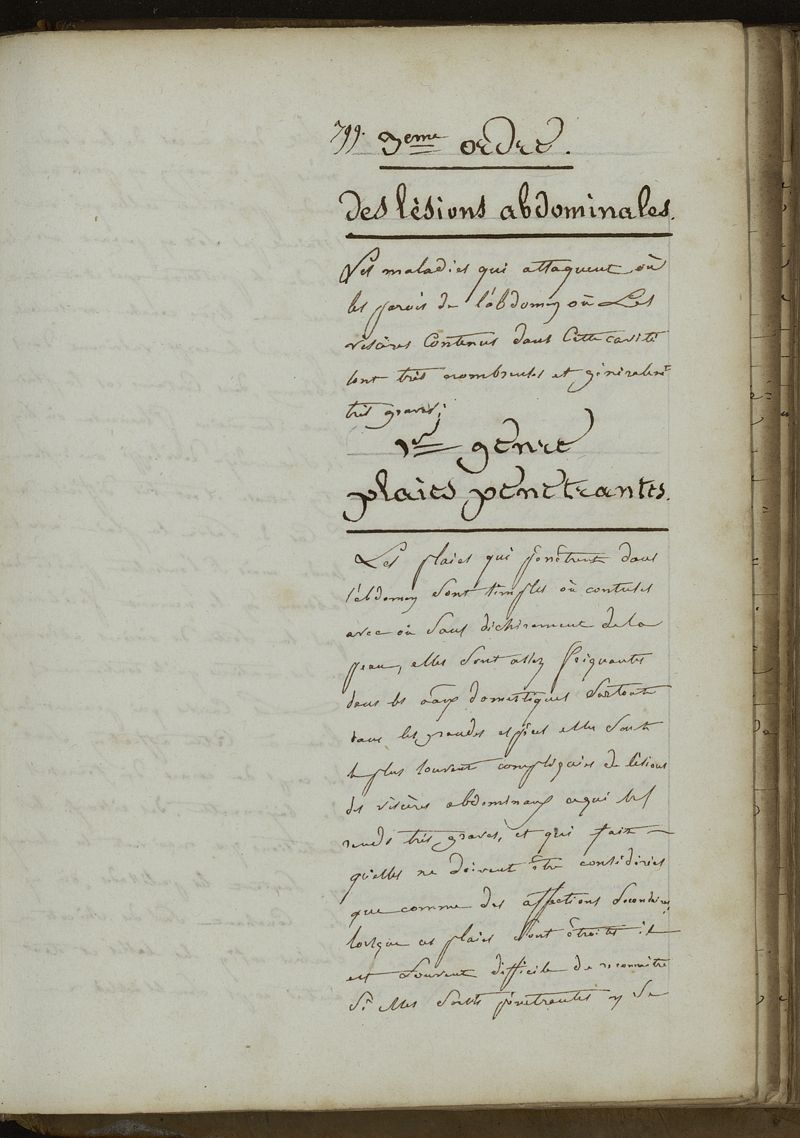 799. 3eme ordre.
des lèsions abdominales.
Les maladies qui attaquent où
les parois de l'abdomen où Les
viscères Contenus dans Cette cavité
sont très nombreuses et géneralemt
très graves;
1er genre
plaies penetrantes.
Les plaies qui pénètrent dans
l'abdomen Sont simples où contuses
avec où Sans dichirement de la
peau, elles Sont assez frequantes
dans les domestiques Surtout
dans les grandes espèces elles Sont
le plus souvent compliquées de lésions
des viscères abdominaux ce qui les
rends très graves, et qui fait
quelles ne doivent être considéries
que comme des affections Secondaires
lorsque ces plaies Sont ètroites il
est Souvent difficile de reconnaitre
Si elles Sont pénètrantes